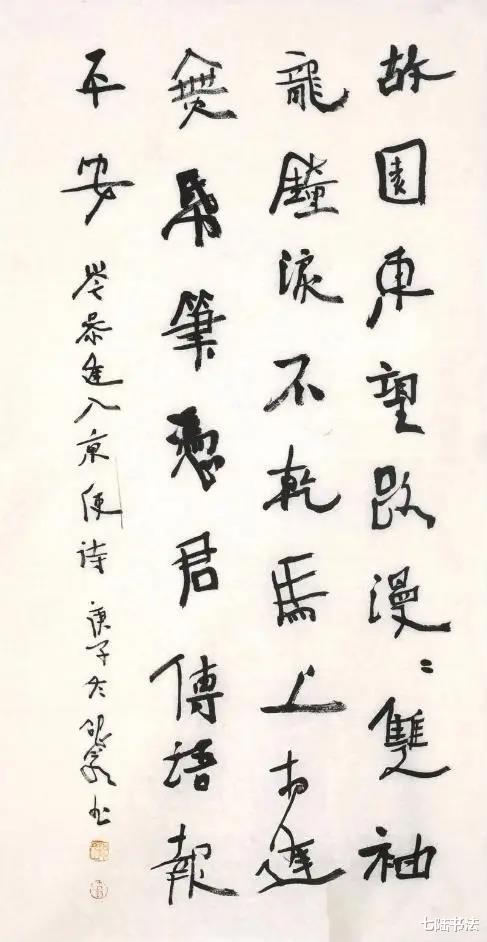 故園東望路漫〻雙袖
龍鐘淚不乾馬上相逢
無帋筆憑君傳語報
平安 岑參逢入京使诗 庚子冬 书
七陆书法